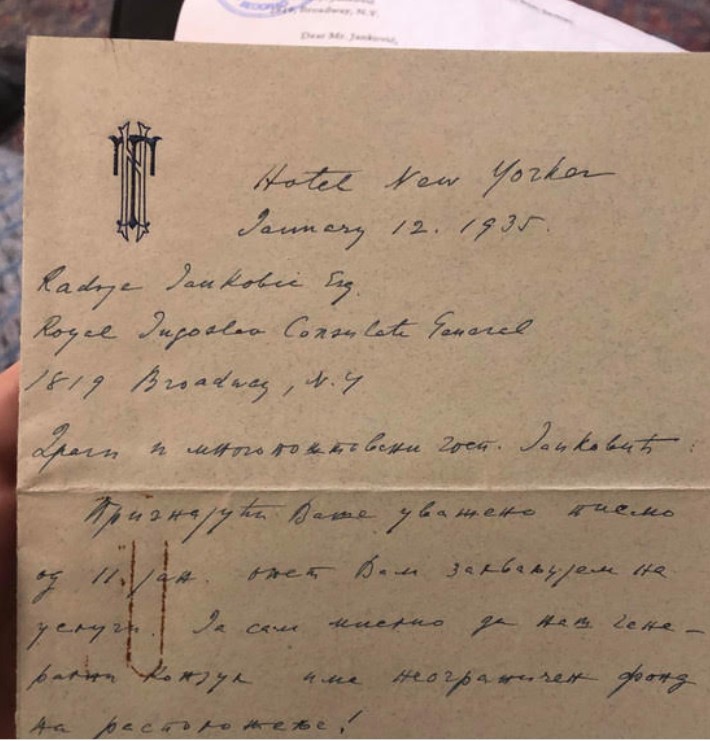 Broadway, N.Y.
Dear Mr. Janković,
Hotel New Yorker
January 12. 1935.
Radoje Jankobic Esq.
Royal Jugoslav Consulate General
1819 Broadway, N.Y
Драги и многопоштовани госп. Јанковић:
Признајући Ваше уважено писмо
од 11. јан. опет Вам захваљујем на
услуги. Ја сам мислио да наш гене-
рални Конзул има неограничен фонд
на расположење!